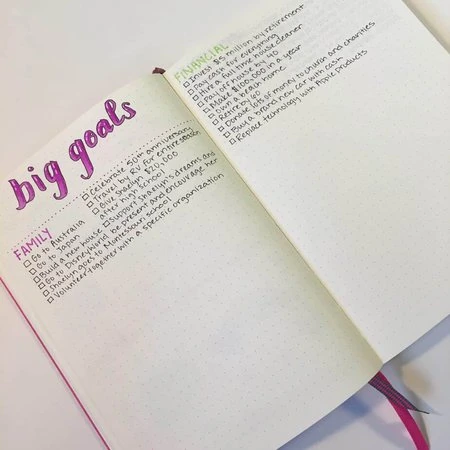 big goals
FAMILY
Go to Australia
Go to Japan
Build a new house
Go to Disneyworld
Shaelyn goes to Montessori school
Volunteer together with a specific organization
Celebrate 50th anniversary
Travel by RV for entire season
Give Shaelyn $20,000
after high school
Support Shaelyn's dreams and
be present and encourage her
FINANCIAL
Invest $5 million by retirement
Pay cash for everything
Hire a full time house cleaner
Pay off house by 40
Make $100,000 in a year
Own a beach home
Retire by 60
Donate lots of money to church and charities
Buy a brand new car with cash
Replace technology with Apple products